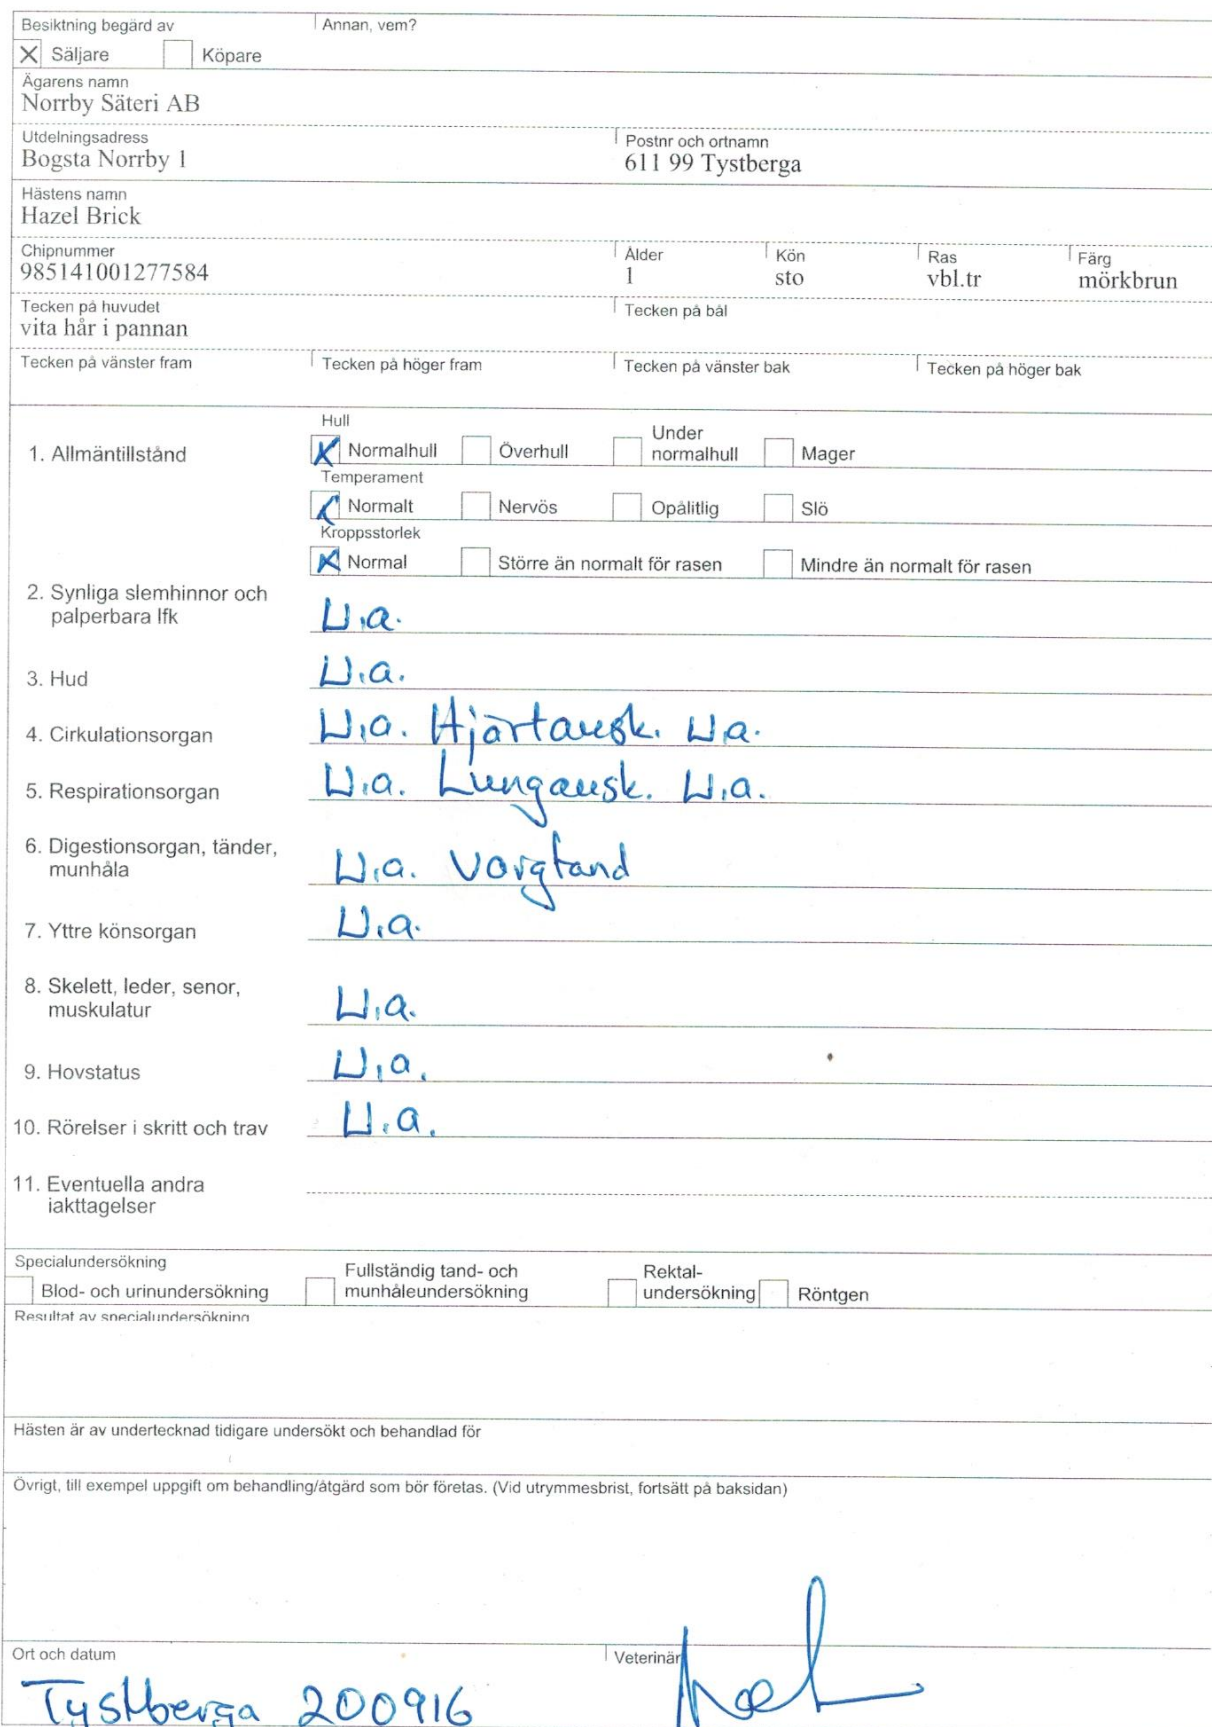 Besiktning begärd av Annan, vem?
X Säljare Köpare
Ägarens namn
Norrby Säteri AB
Utdelningsadress Postnr och ortnamn
Bogsta Norrby 1 611 99 Tystberga
Hästens namn
Hazel Brick
Chipnummer Ålder Kön Ras Färg
985141001277584 1 sto vbl.tr mörkbrun
Tecken på huvudet Tecken på bål
vita hår i pannan
Tecken på vänster fram Tecken på höger fram Tecken på vänster bak Tecken på höger bak
Hull
1. Allmäntillstånd X Normalhull Överhull Under normalhull Mager
Temperament
X Normalt Nervös Opålitlig Slö
Kroppsstorlek
X Normal Större än normalt för rasen Mindre än normalt för rasen
2. Synliga slemhinnor och
palperbara lfk U.a.
3. Hud U.a.
4. Cirkulationsorgan U.a. Hjärtausk. U.a.
5. Respirationsorgan U.a. Lungausk. U.a.
6. Digestionsorgan, tänder,
munhåla U.a. Vargtand
7. Yttre könsorgan U.a.
8. Skelett, leder, senor,
muskulatur U.a.
9. Hovstatus U.a.
10. Rörelser i skritt och trav U.a.
11. Eventuella andra
iakttagelser
Specialundersökning
Blod- och urinundersökning Fullständig tand- och munhåleundersökning Rektal-undersökning Röntgen
Resultat av specialundersökning
Hästen är av undertecknad tidigare undersökt och behandlad för
Övrigt, till exempel uppgift om behandling/åtgärd som bör företas. (Vid utrymmesbrist, fortsätt på baksidan)
Ort och datum Veterinär
Tystberga 200916